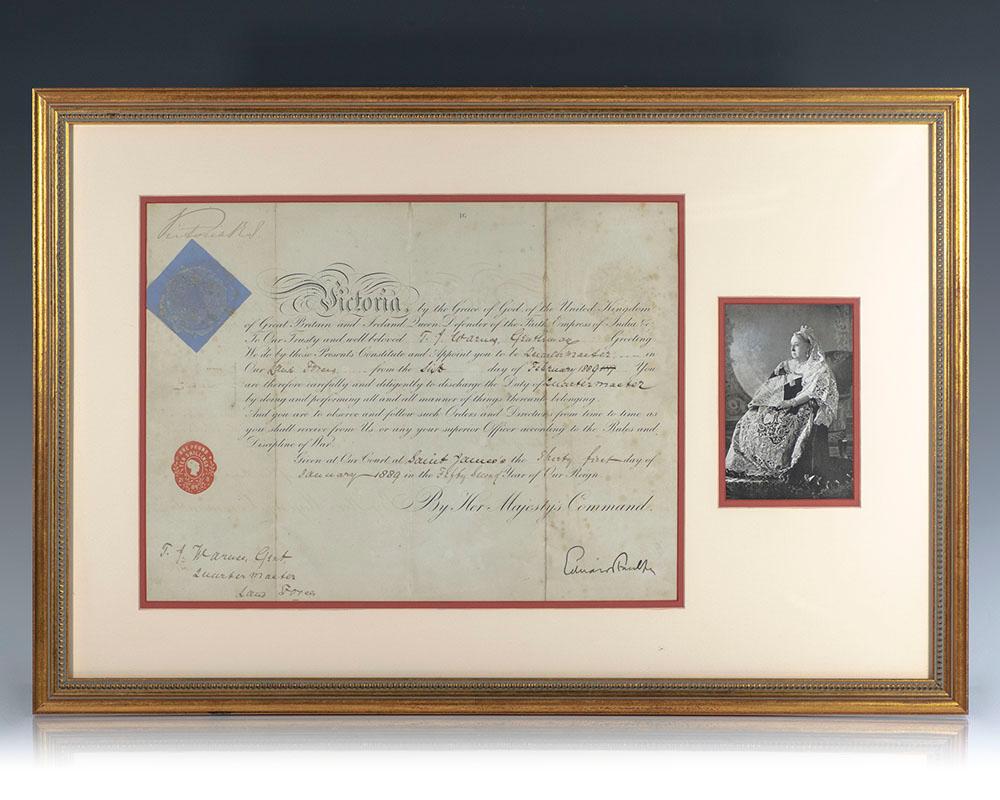 Victoria R.I.
16
Victoria, by the Grace of God, of the United Kingdom
of Great Britain and Ireland, Queen, Defender of the Faith, Empress of India &c
To Our Trusty and well beloved T. J. Gentleman Greeting.
We do by these Presents Constitute and Appoint you to be Quartermaster in
Our Land Forces from the day of February 1889 You
are therefore carefully and diligently to discharge the Duty of Quartermaster
by doing and performing all and all manner of things thereunto belonging.
And you are to observe and follow such Orders and Directions from time to time as
you shall receive from Us or any your superior Officer according to the Rules and
Discipline of War.
Given at Our Court at Saint James's the Thirty first day of
January 1889 in the Fifty Second Year of Our Reign
By Her Majesty's Command.
T. J. Gent.
Quartermaster
Land Forces